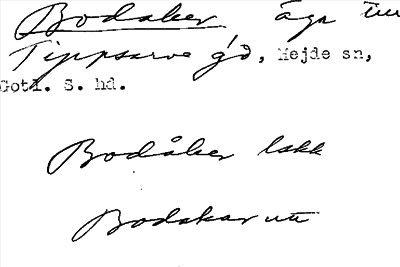 Bodåker, äga till
Tippsarve gd, Hejde sn,
Gotl. S. hd.
Bodåker lokk
Bodakar